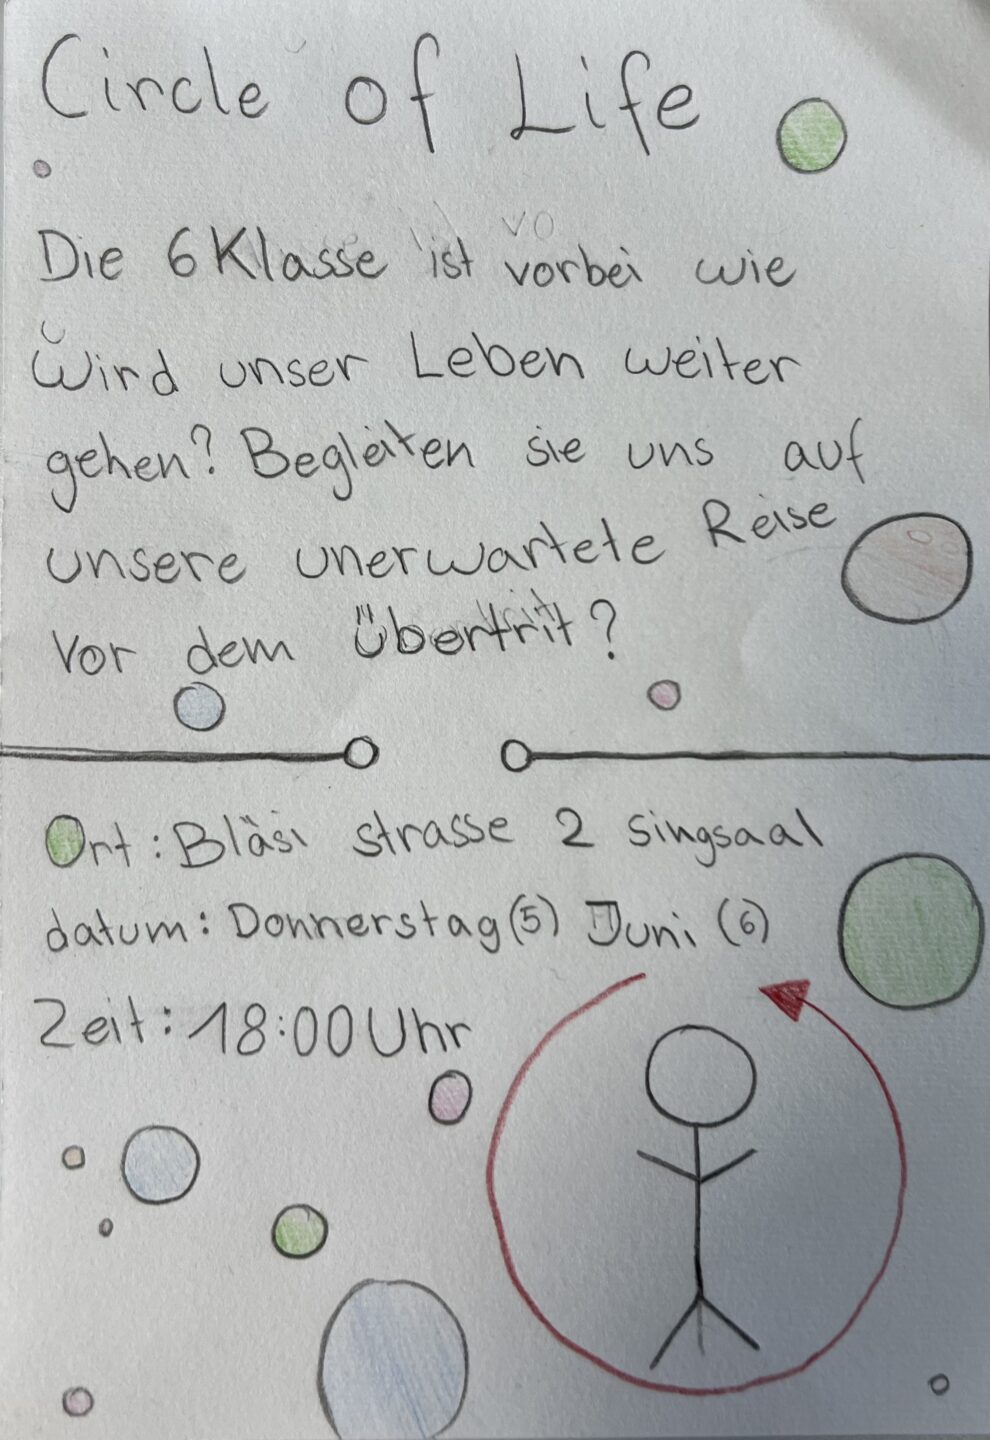 Circle of Life
Die 6 Klasse ist vorbei wie
Wird unser Leben weiter
gehen? Begleiten sie uns auf
unsere unerwartete Reise
Vor dem übertrit?
Ort: Bläsi strasse 2 singsaal
datum: Donnerstag (5) Juni (6)
Zeit: 18:00 Uhr